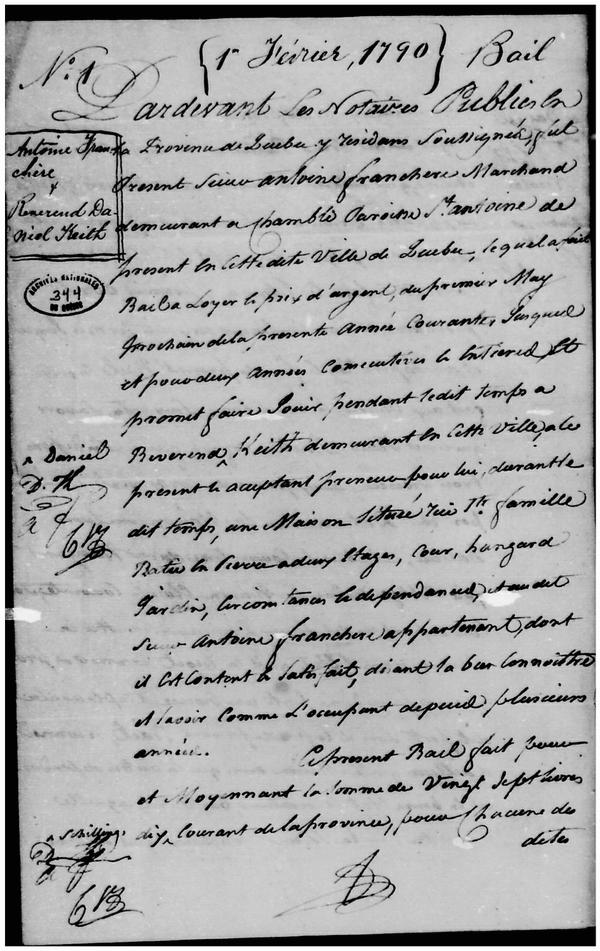 No. 1 {1r Février, 1790} Bail
Pardevant Les Notaires Publics en
la Province de Quebec y residans Soussignés, fut
Present Sieur Antoine franchere Marchand
demeurant a Chamblé Paroisse St. Antoine de
present En Cette dite Ville de Quebec, lequel a fait
Bail a Loyer & prix d'argent, du premier May
prochain de la presente Année Courante, Jusques
et pour deux Années Consecutives & Entieres Et
promet faire Jouir pendant ledit temps a
Reverend ^ Keith demeurant En Cette Ville, a ce
present & acceptant preneur pour lui, durant le
dit temps, une Maison Situeé rüe Ste. famille
Batie En Pierre a deux Etages, Cour, hangard
Jardin, Circonstances & dependances, et audit
Sieur Antoine franchere appartenant, dont
il Est Content & Satisfait, disant la bien Connoitre
et Savoir Comme L'occupant depuis plusieurs
années. Ce present Bail fait pour
et Moyennant la Somme de Vingt Sept livres
dix ^ Courant de la province, pour Chacune des
dites
Antoine Fran-
chère
&
Reverend Da-
niel Keith
ARCHIVES NATIONALES
344
DU QUÉBEC
^ Daniel
D. K
^ Schillings